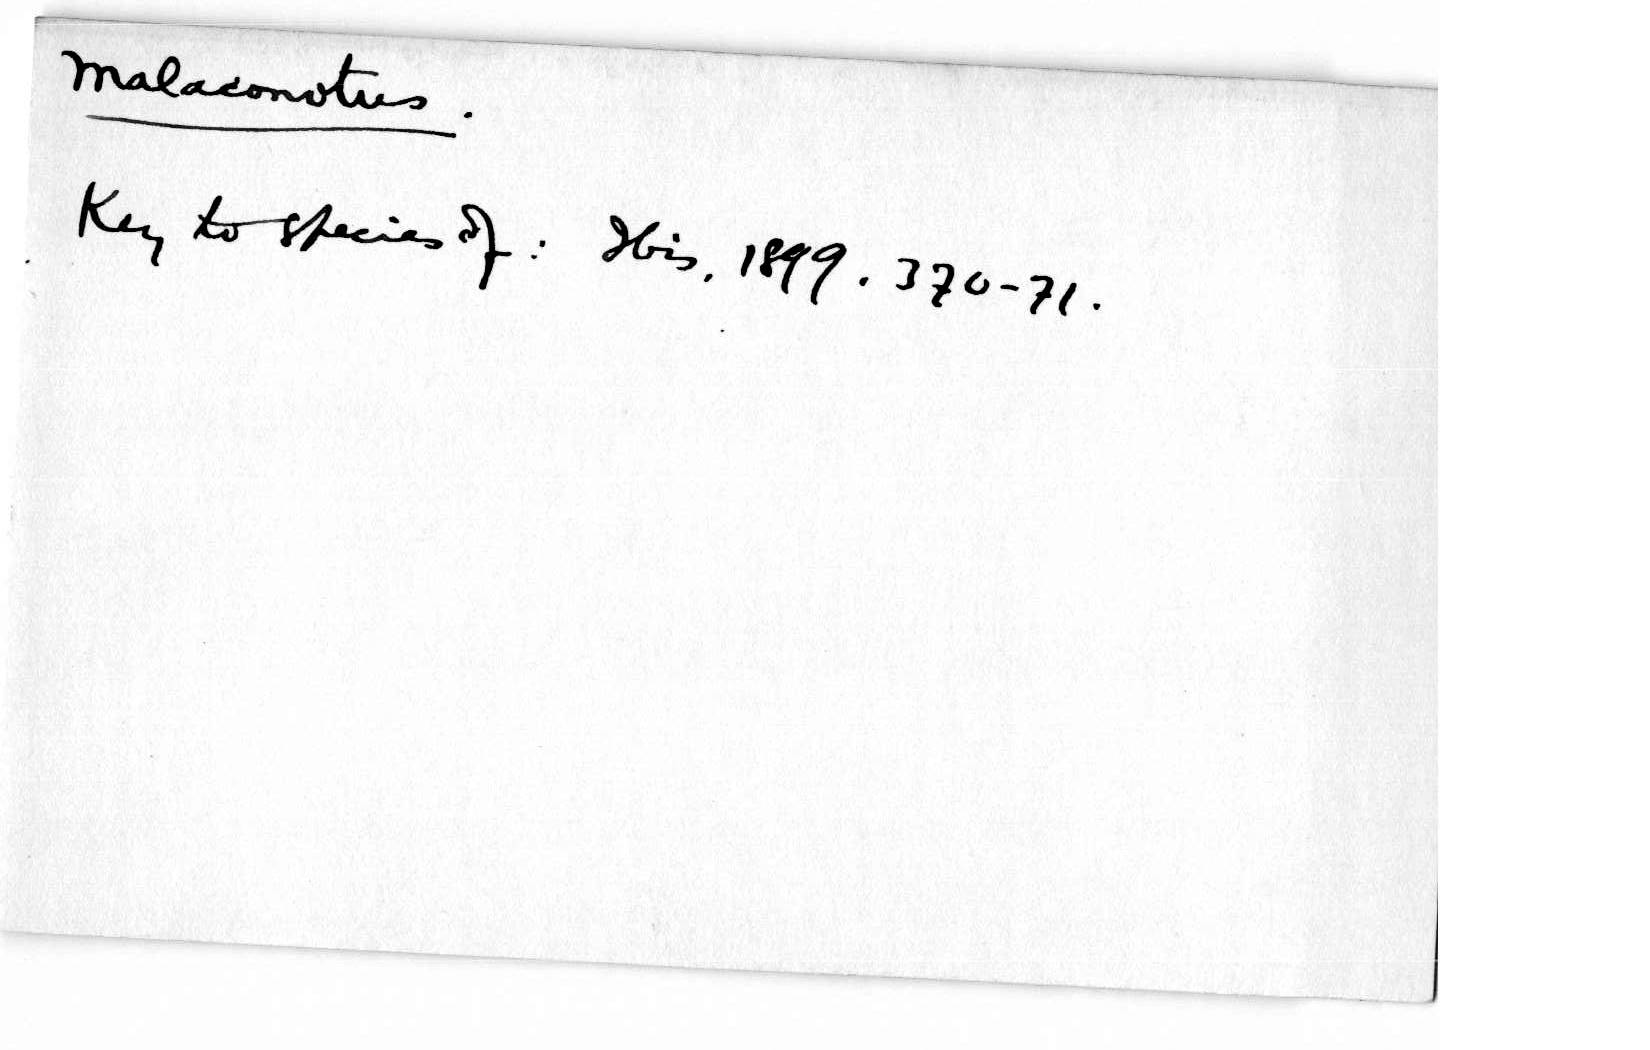 Malaconotus.
Key to species of: Ibis, 1899. 370-71.